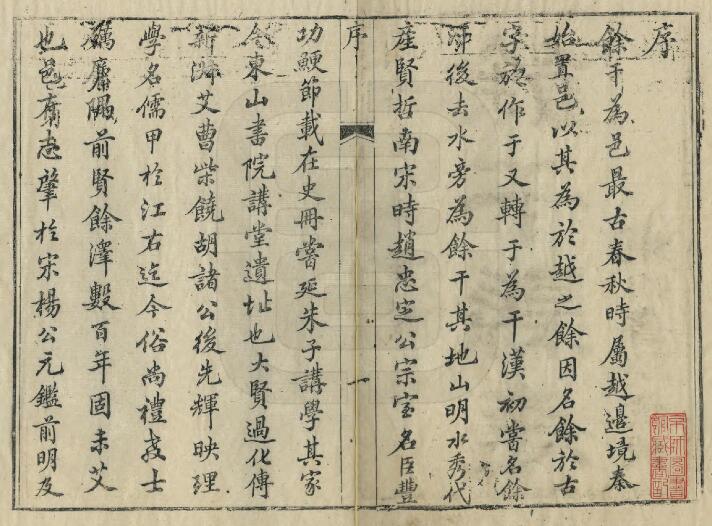 序
餘干為邑最古春秋時屬越邊境秦
始置邑以其為於越之餘因名餘於古
字於作于又轉于為干漢初嘗名餘
汗後去水旁為餘干其地山明水秀代
產賢哲南宋時趙忠定公宗室名臣豐
序
一
功鯁節載在史冊嘗延朱子講學其家
今東山書院講堂遺址也大賢過化傳
新淑艾曹柴饒胡諸公後先輝映理
學名儒甲於江右迄今俗尚禮教士
礪廉隅前賢餘澤數百年固未艾
也邑有志肇於宋楊公元鑑前明及